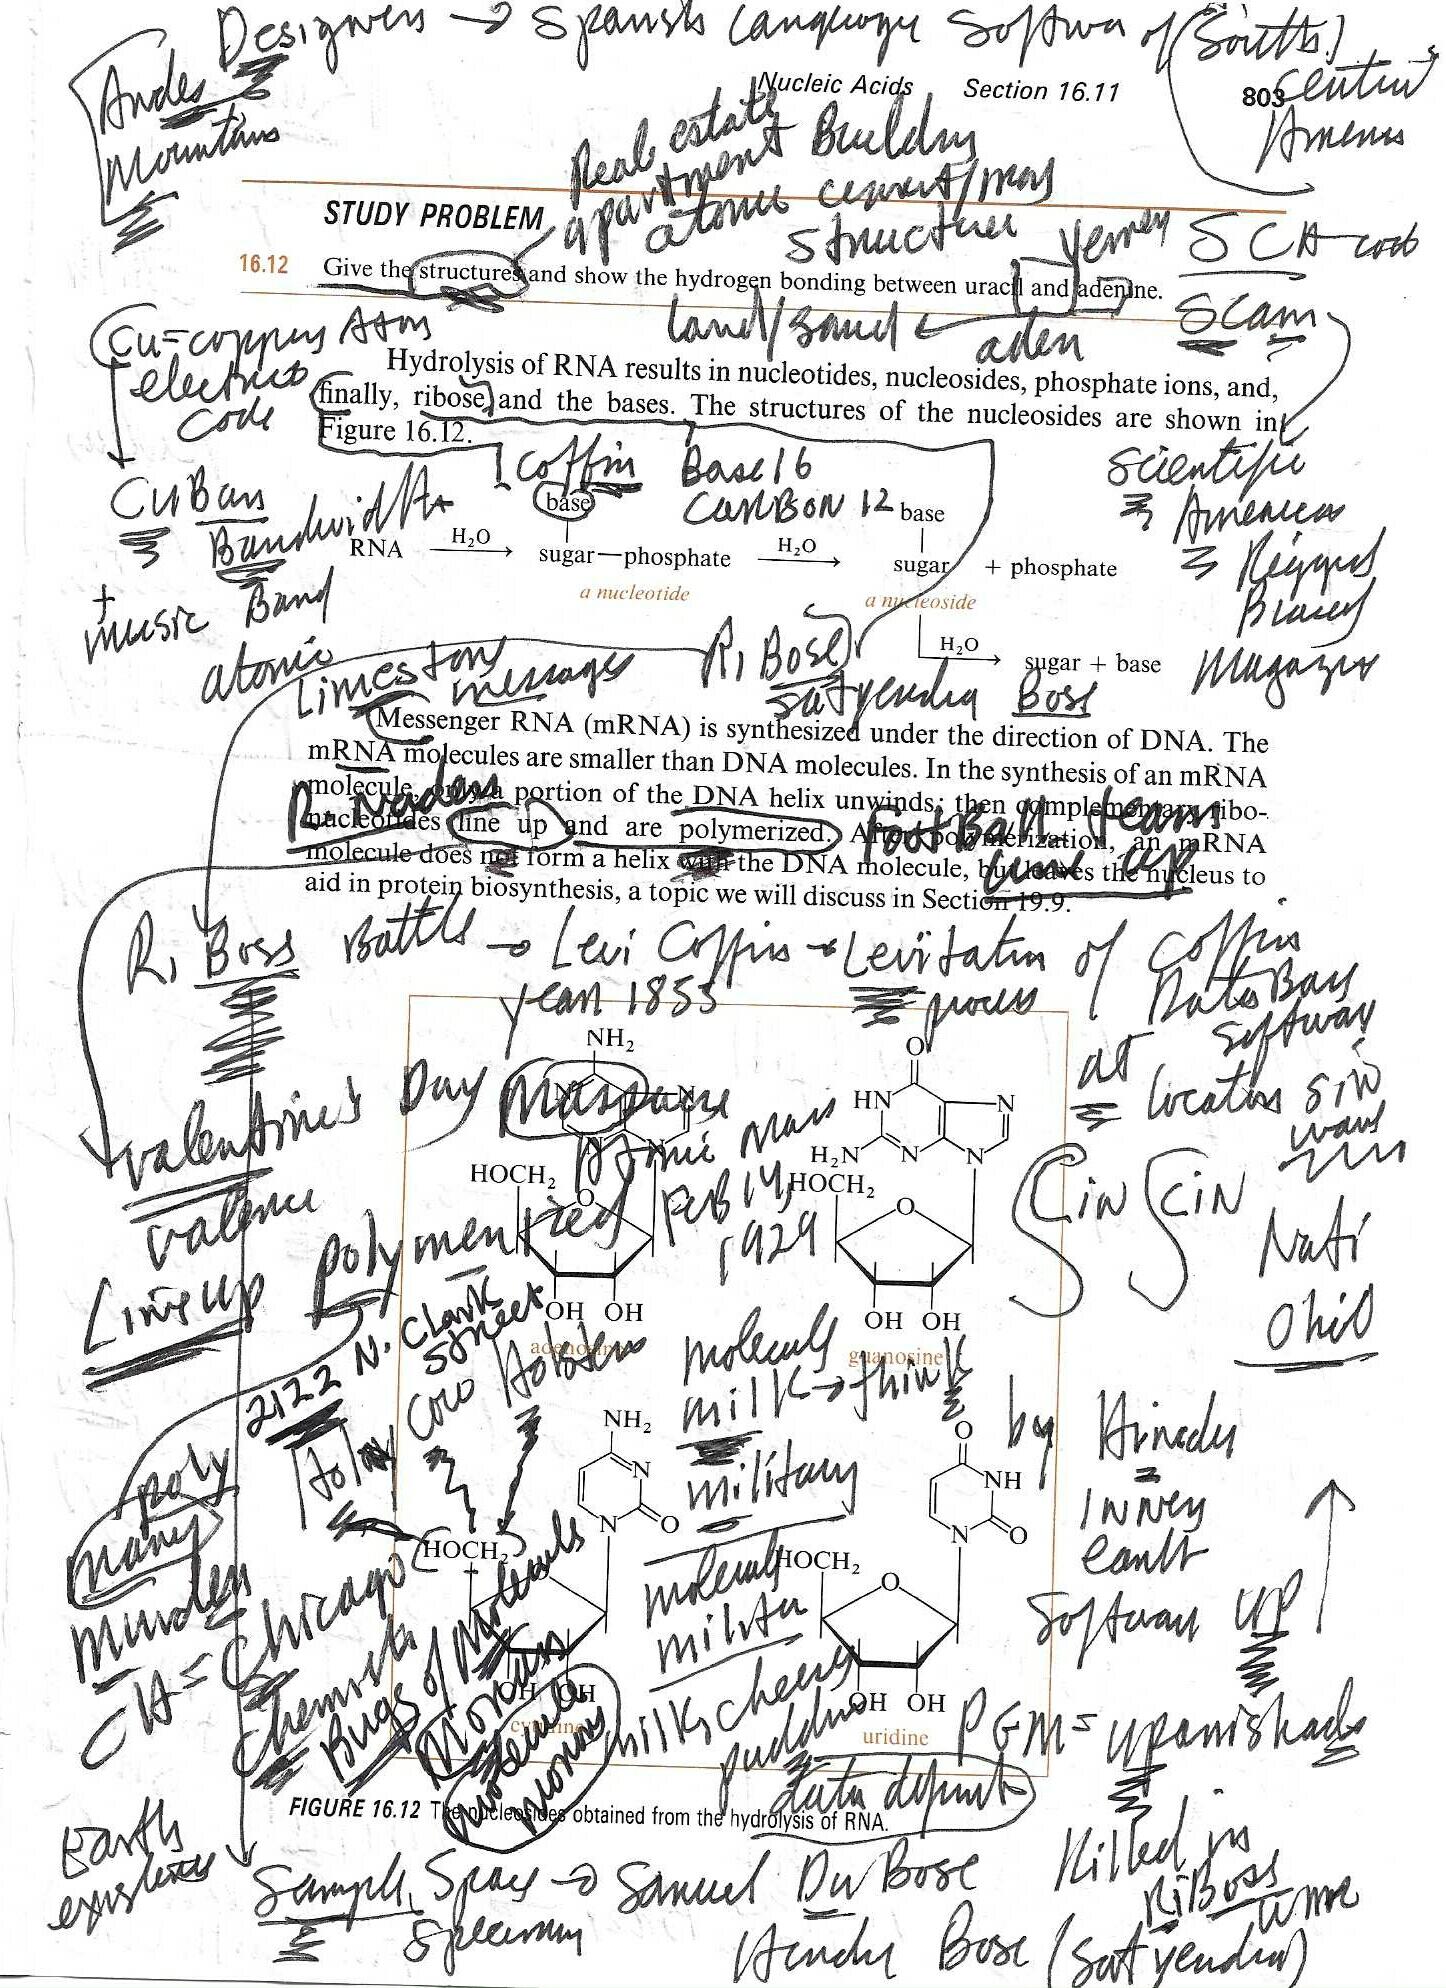 Designers → Spanish Language Softwa of (South)
Andes
Mountains
Nucleic Acids Section 16.11 803
Central
Ameris
Real estate
apartment Building
atomic cement/mas
structure
STUDY PROBLEM
Yemen
SCA code
16.12 Give the structures and show the hydrogen bonding between uracil and adenine.
land/sand ← aden
SCam
Cu=coppers Atom
electric
code
Hydrolysis of RNA results in nucleotides, nucleosides, phosphate ions, and,
finally, ribose and the bases. The structures of the nucleosides are shown in
Figure 16.12.
Coffin Base 16
CARBON 12
Scientific
American
Magazin
CuBans
Bandwidth
+
music Band
base base
RNA H₂O sugar—phosphate H₂O sugar + phosphate
a nucleotide a nucleoside
H₂O sugar + base
atomic
Limestone
messages
R, Bose
Satyendra Boss
Messenger RNA (mRNA) is synthesized under the direction of DNA. The
mRNA molecules are smaller than DNA molecules. In the synthesis of an mRNA
molecule, only a portion of the DNA helix unwinds; then complementary ribo-
nucleotides line up and are polymerized. After polymerization, an mRNA
molecule does not form a helix with the DNA molecule, but leaves the nucleus to
aid in protein biosynthesis, a topic we will discuss in Section 19.9.
Foot Ball team
line up
R, Boss Battle → Levi Coffin → Levitation of Coffin
year 1855
process
Data Bars
Software
at location sin
wave
Valentine's Day Massacre
Atomic Mass
Feb 14,
1929
valence
Line up
polymerized
NH₂
HOCH₂
O
OH OH
adenosine
O
HN
N
H₂N N N
HOCH₂
O
OH OH
guanosine
Cin Cin
Nati
Ohio
2122 N. Clark
Street
poly
many
Murder
CH = Chicago
Chemists
Bugs of Molecules
Moran
molecule
moran
NH₂
N
N O
HOCH₂
OH OH
cytidine
molecule
milk → think
military
molecule
milita
milk, cheese
pudding
data deposit
O
NH
N O
HOCH₂
O
OH OH
uridine
by Hindu
inner
earth
Software UP
PGM = upanishads
FIGURE 16.12 The nucleosides obtained from the hydrolysis of RNA.
Earth
existence
Sample Space → Samuel DuBose
Specimen
Killed in
RiBoss
time
Hindu Bose (Satyendra)